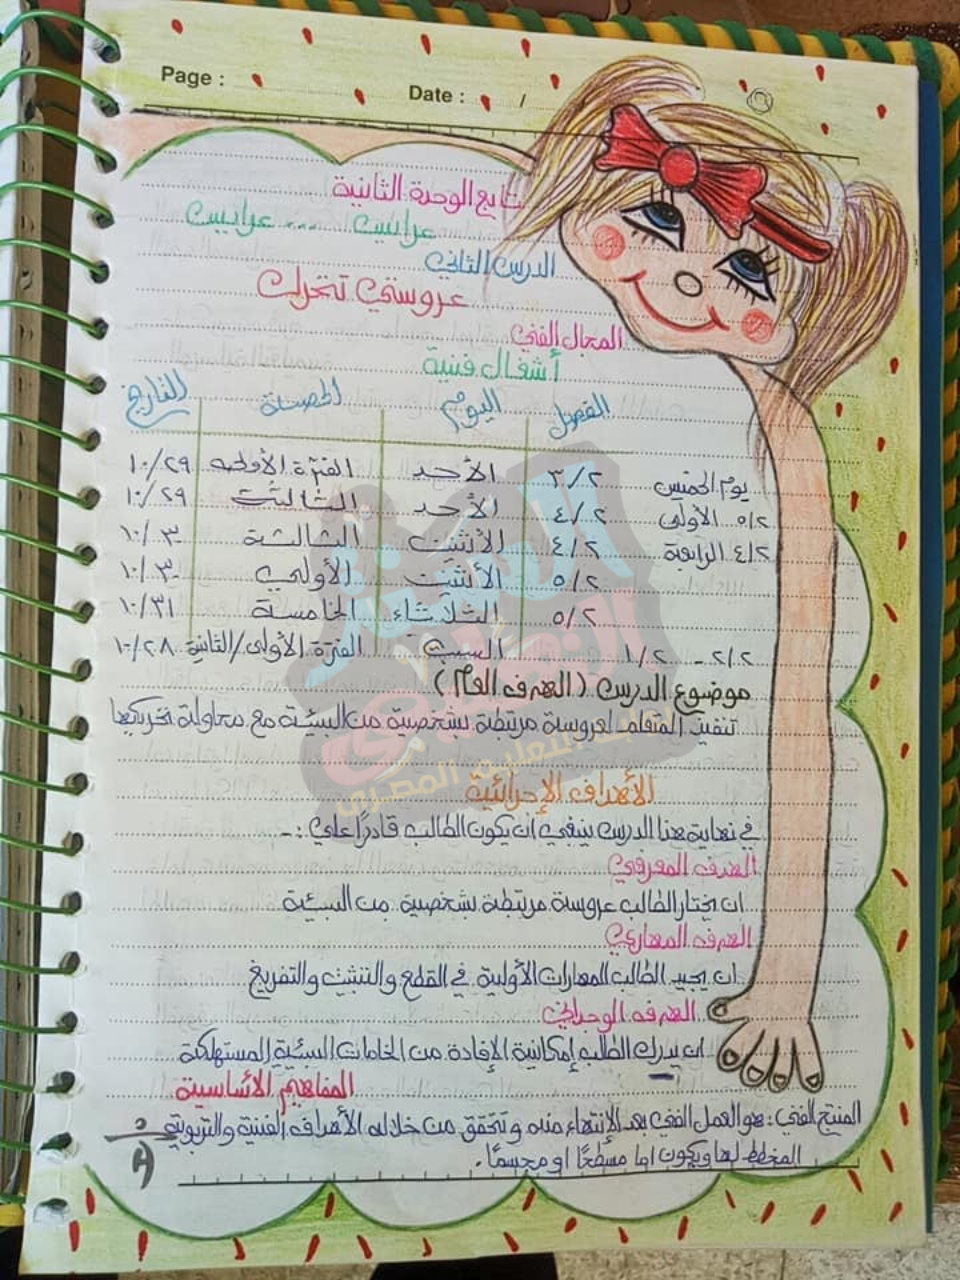 Page :
Date : /
تابع الوحدة الثانية
عرائس ... عرايس
الدرس الثاني
عروستي تتحرك
المجال الفني
أشغال فنية
الفصل اليوم الحصة التاريخ
٣/٢ الأحد الفترة الأولى ١٠/٢٩
يوم الخميس
٤/٢ الأحد الثالثة ١٠/٢٩
٥/٢ الأولى
٤/٢ الأثنين الثالثة ١٠/٣٠
٤/٢ الرابعة
٥/٢ الأثنين الأولى ١٠/٣٠
٥/٢ الثلاثاء الخامسة ١٠/٣١
٢/٢ - ١/٢ السبت الفترة الأولى/الثانية ١٠/٢٨
موضوع الدرس (الهدف العام)
تنفيذ المتعلم لعروسة مرتبطة بشخصية من البيئة مع محاولة تحريكها
الأهداف الإجرائية
في نهاية هذا الدرس ينبغي أن يكون الطالب قادرًا على :-
الهدف المعرفي
ان يختار الطالب عروسة مرتبطة بشخصية من البيئة
الهدف المهاري
ان يجيد الطالب المهارات الأولية في القطع والتثبيت والتفريغ
الهدف الوجداني
ان يدرك الطالب إمكانية الإفادة من الخامات البيئية المستهلكة
المفاهيم الأساسية
المنتج الفني : هو العمل الفني بعد الإنتهاء منه وتتحقق من خلاله الأهداف الفنية والتربوية
المخطط لها ويكون اما مسطحًا او مجسمًا .